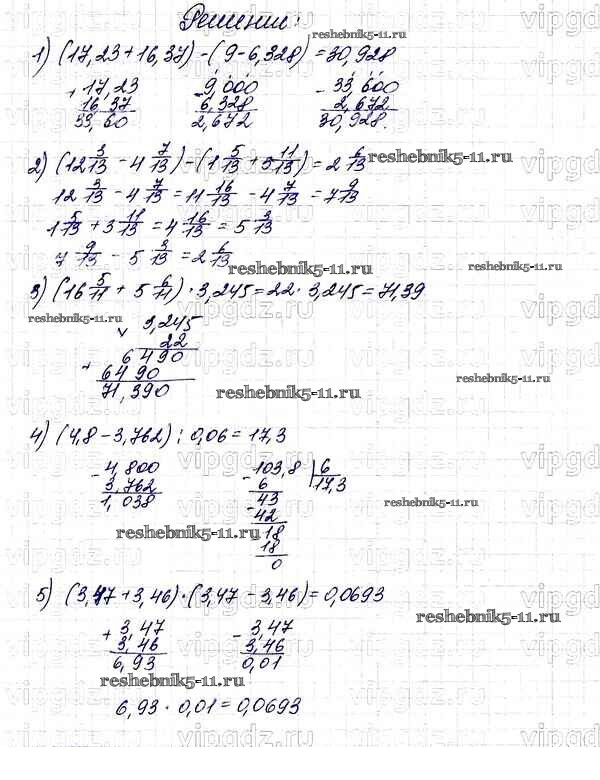 Решение:
reshebnik5-11.ru
1) (17,23+16,37)-(9-6,328)=30,928
+17,23 -9,000 -33,600
16,37 6,328 2,672
33,60 2,672 30,928.
2) (12 3/13 - 4 7/13) - (1 5/13 + 3 11/13) = 2 6/13
reshebnik5-11.ru
12 3/13 - 4 7/13 = 11 16/13 - 4 7/13 = 7 9/13
1 5/13 + 3 11/13 = 4 16/13 = 5 3/13
7 9/13 - 5 3/13 = 2 6/13
reshebnik5-11.ru
3) (16 5/11 + 5 6/11) · 3,245 = 22 · 3,245 = 71,39
reshebnik5-11.ru
× 3,245
22
6490
+ 6490
71,390
reshebnik5-11.ru
reshebnik5-11.ru
4) (4,8-3,762) : 0,06 = 17,3
-4,800 -103,8 | 6
3,762 6 17,3
1,038 43
-42
18
18
0
reshebnik5-11.ru
reshebnik5-11.ru
5) (3,47+3,46)·(3,47-3,46)=0,0693
reshebnik5-11.ru
+3,47 -3,47
3,46 3,46
6,93 0,01
reshebnik5-11.ru
6,93 · 0,01 = 0,0693
vipgdz.ru